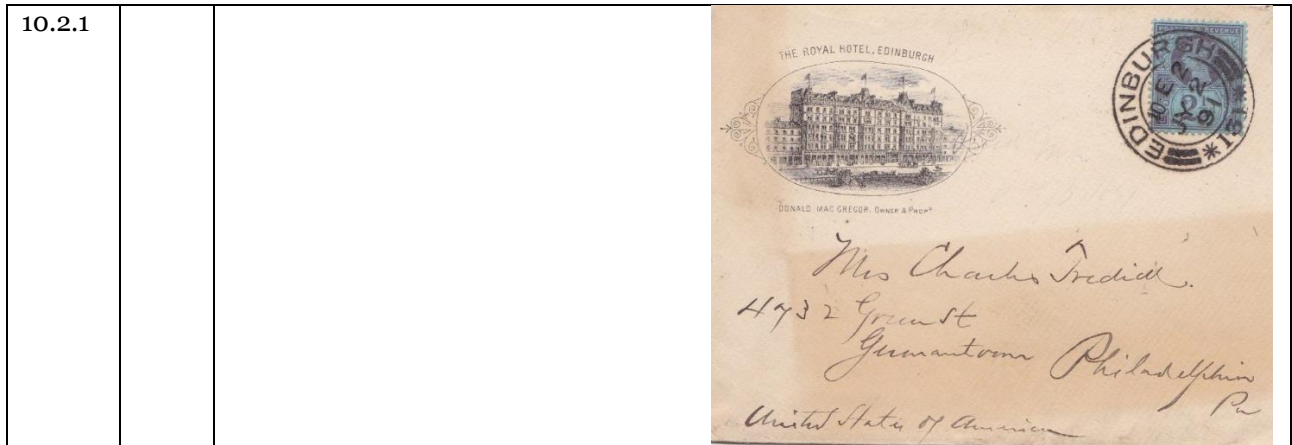 10.2.1
THE ROYAL HOTEL, EDINBURGH
DONALD MAC GREGOR, OWNER & PROPR
EDINBURGH
131
91
REVENUE
Mrs Charles
4732 Green St
Germantown Philadelphia
Pa
United States of America